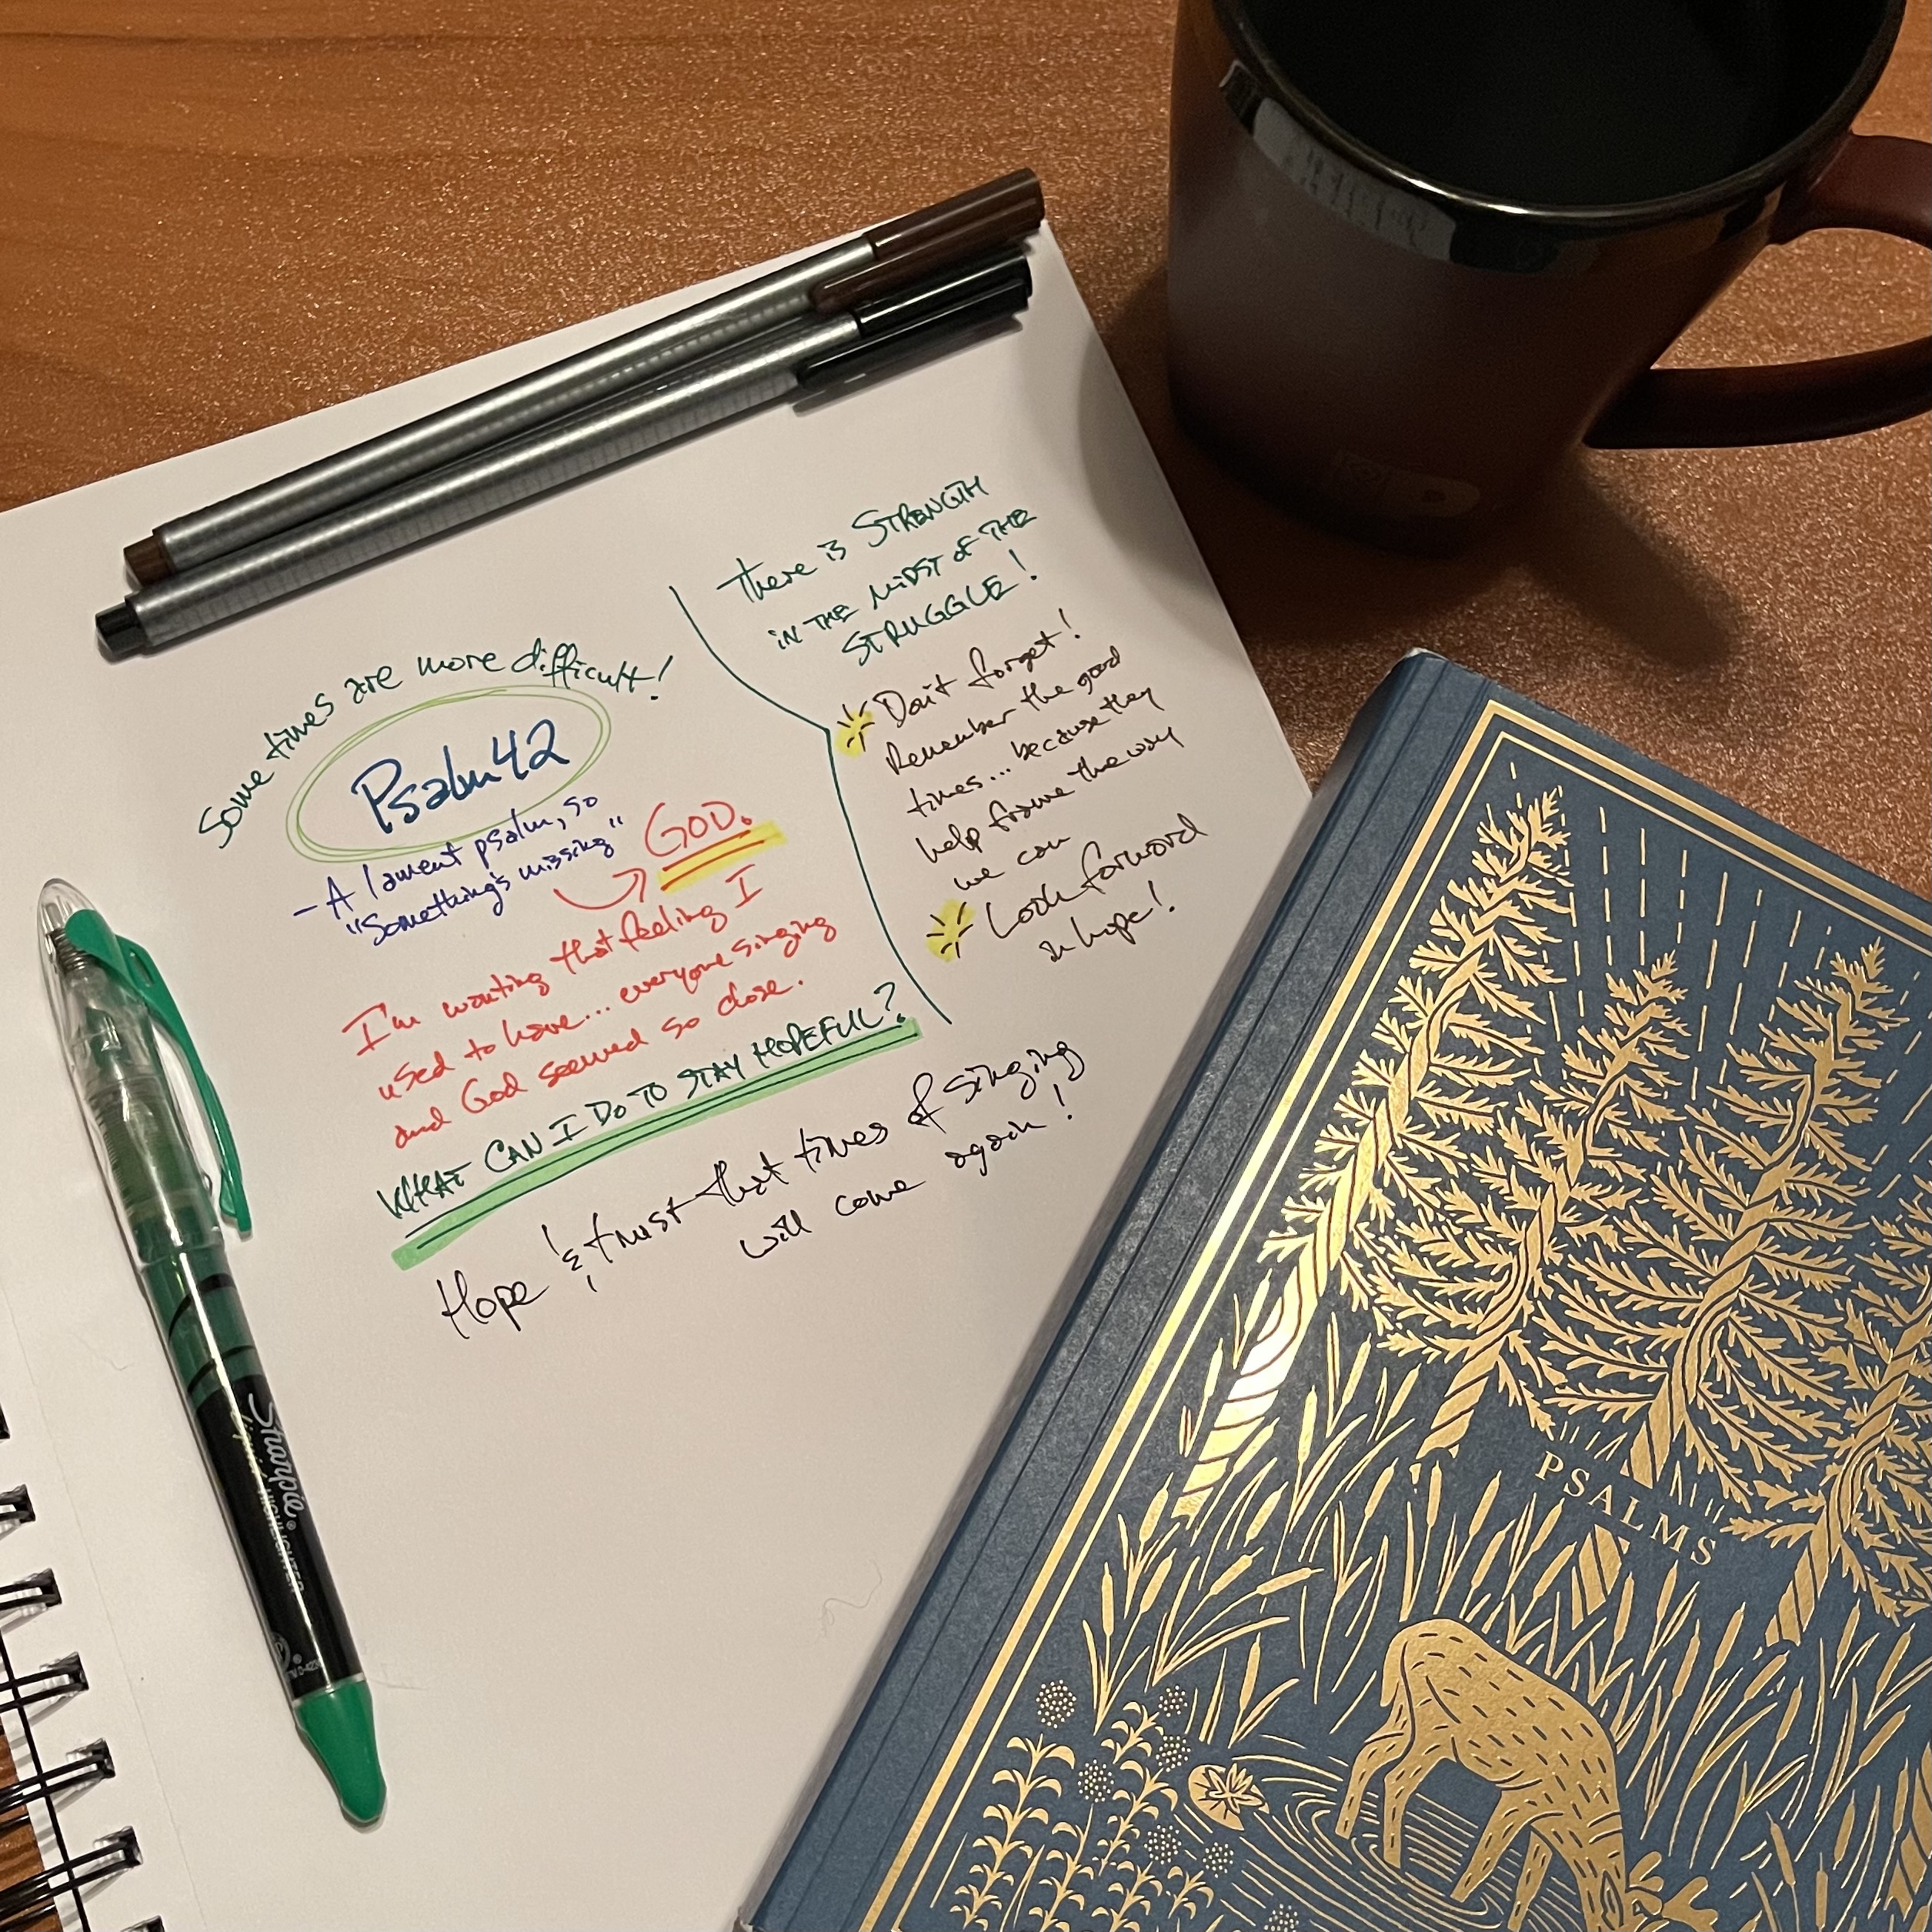 Some times are more difficult!
Psalm 42
- A lament psalm, so
"Something's missing"
GOD.
I'm wanting that feeling I
used to have... everyone singing
and God seemed so close.
WHAT CAN I DO TO STAY HOPEFUL?
Hope & trust that times of singing
will come again!
There is STRENGTH
IN THE MIDST OF THE
STRUGGLE!
Don't forget!
Remember the good
times... because they
help frame the way
we can
Look forward
in hope!
Sharpie®
Liquid HIGHLIGHTER
PSALMS